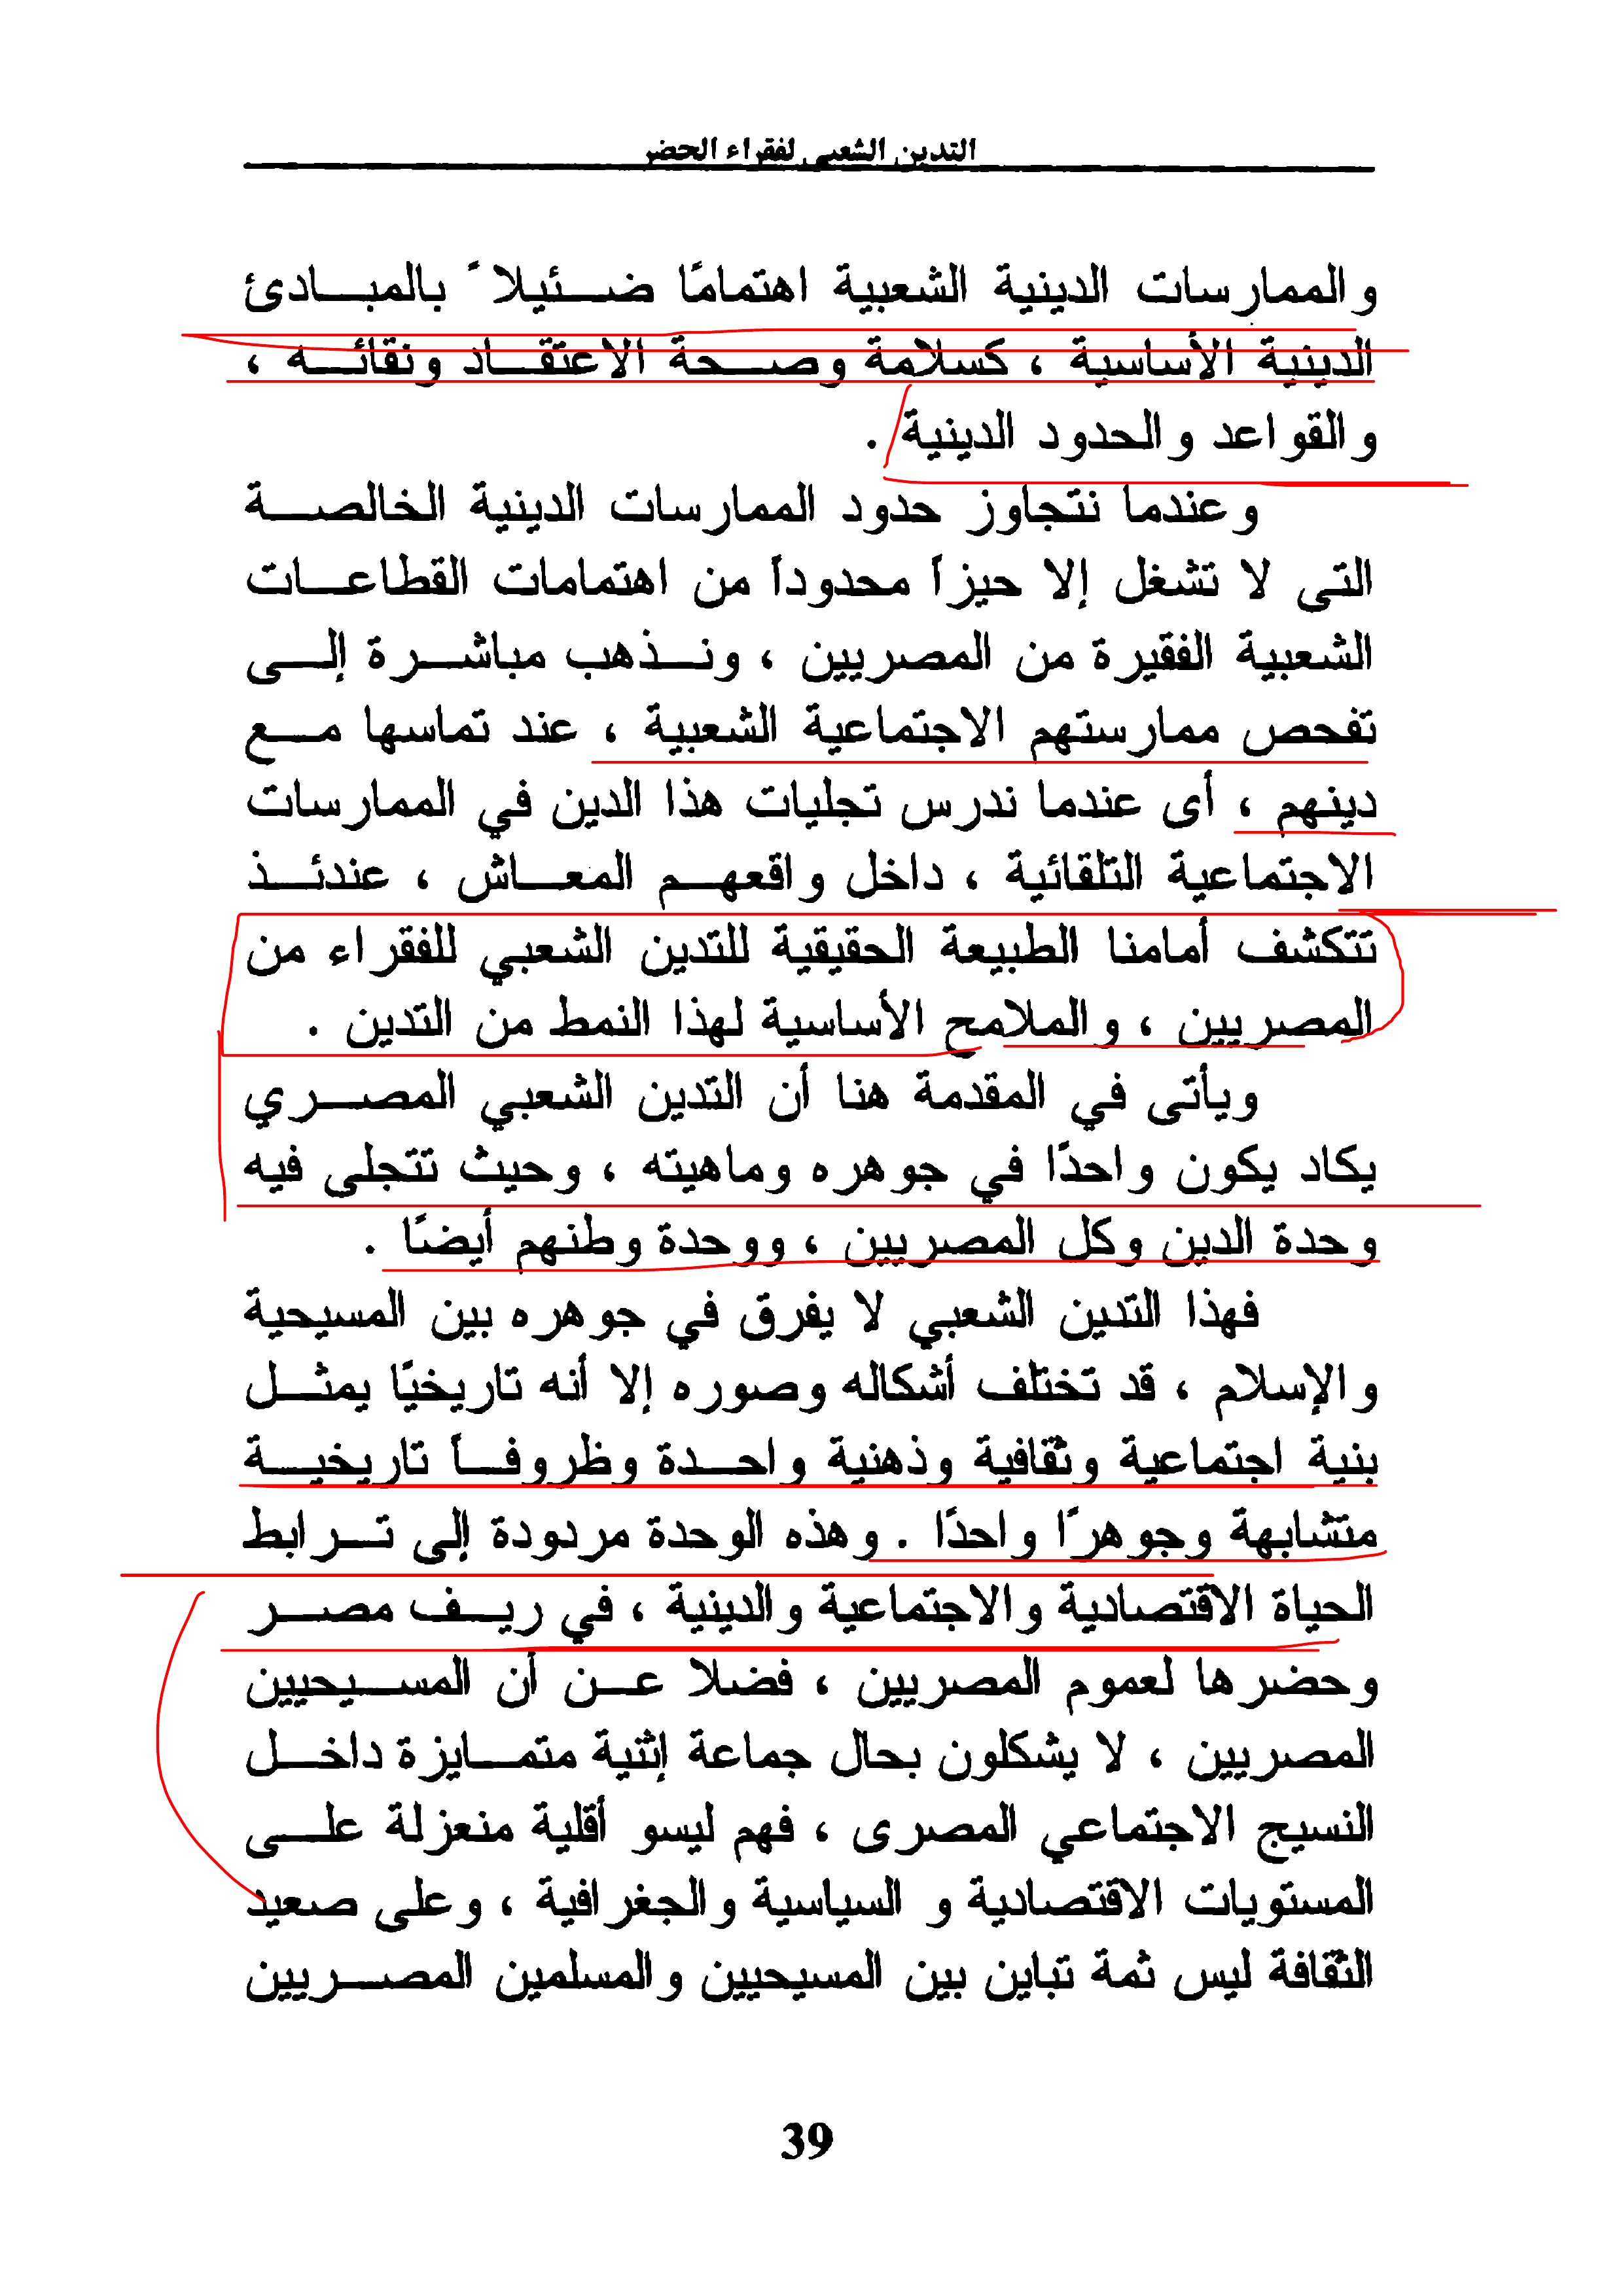 التدين الشعبي لفقراء الحضر
والممارسات الدينية الشعبية اهتمامًا ضئيلاً بالمبادئ
الدينية الأساسية ، كسلامة وصحة الاعتقاد ونقائه ،
والقواعد والحدود الدينية .
وعندما نتجاوز حدود الممارسات الدينية الخالصة
التى لا تشغل إلا حيزاً محدوداً من اهتمامات القطاعات
الشعبية الفقيرة من المصريين ، ونذهب مباشرة إلى
تفحص ممارستهم الاجتماعية الشعبية ، عند تماسها مع
دينهم ، أى عندما ندرس تجليات هذا الدين في الممارسات
الاجتماعية التلقائية ، داخل واقعهم المعاش ، عندئذ
تتكشف أمامنا الطبيعة الحقيقية للتدين الشعبي للفقراء من
المصريين ، والملامح الأساسية لهذا النمط من التدين .
ويأتى في المقدمة هنا أن التدين الشعبي المصري
يكاد يكون واحدًا في جوهره وماهيته ، وحيث تتجلى فيه
وحدة الدين وكل المصريين ، ووحدة وطنهم أيضًا .
فهذا التدين الشعبي لا يفرق في جوهره بين المسيحية
والإسلام ، قد تختلف أشكاله وصوره إلا أنه تاريخيًا يمثل
بنية اجتماعية وثقافية وذهنية واحدة وظروفاً تاريخية
متشابهة وجوهرًا واحدًا . وهذه الوحدة مردودة إلى ترابط
الحياة الاقتصادية والاجتماعية والدينية ، في ريف مصر
وحضرها لعموم المصريين ، فضلا عن أن المسيحيين
المصريين ، لا يشكلون بحال جماعة إثنية متمايزة داخل
النسيج الاجتماعي المصرى ، فهم ليسو أقلية منعزلة على
المستويات الاقتصادية و السياسية والجغرافية ، وعلى صعيد
الثقافة ليس ثمة تباين بين المسيحيين والمسلمين المصريين
39